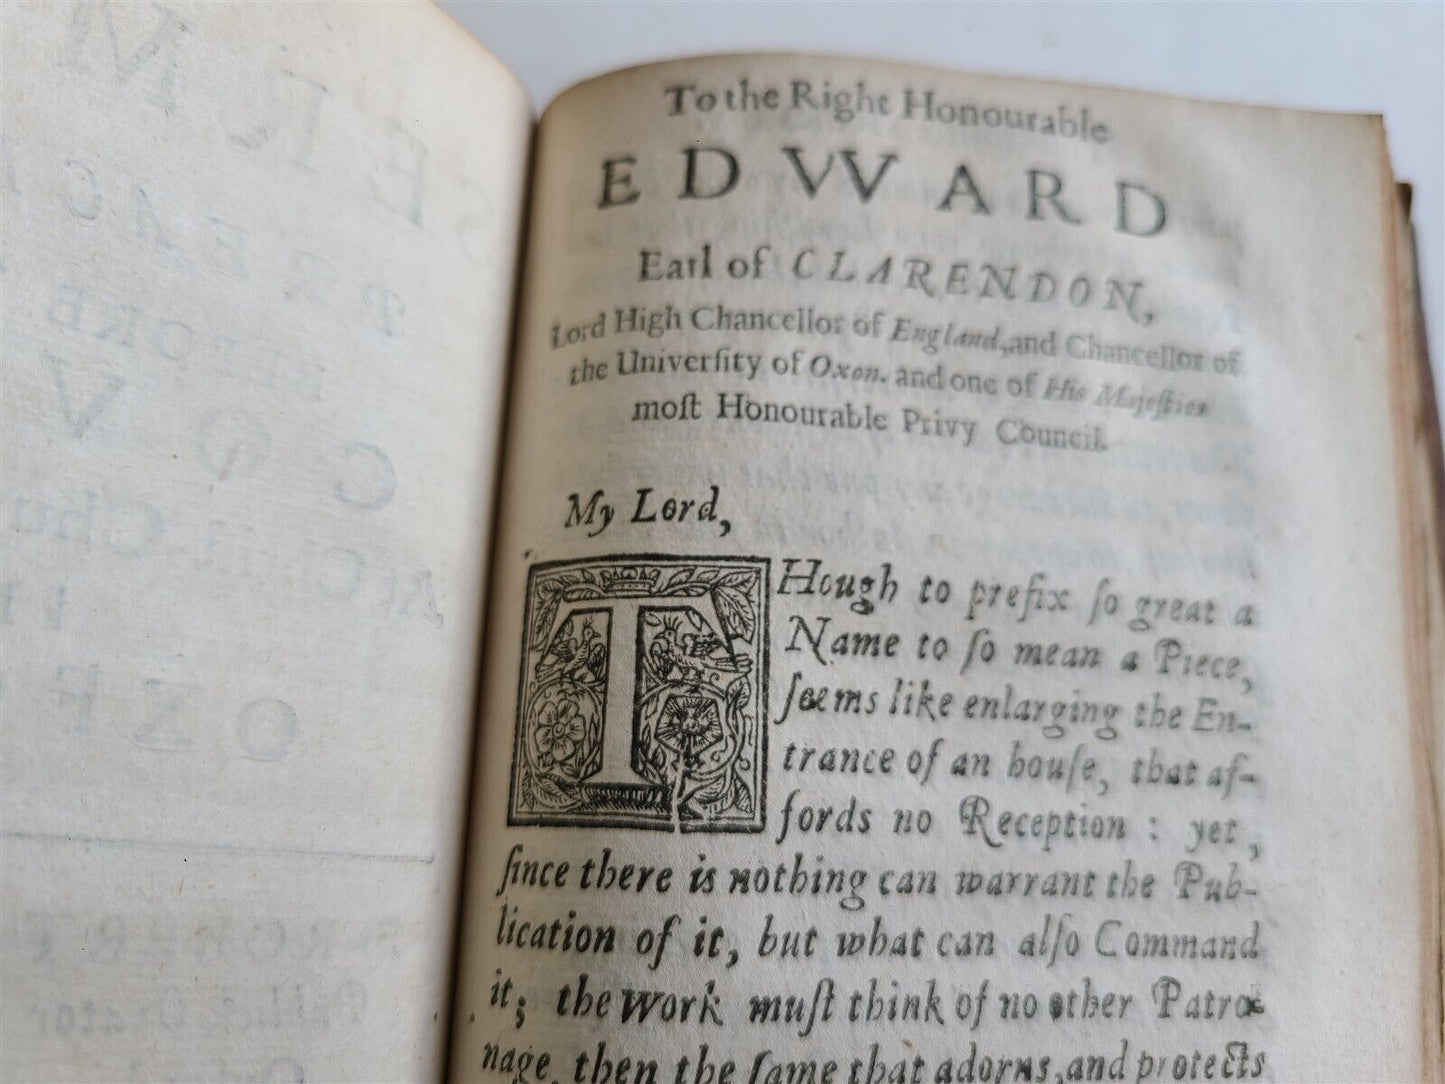 To the Right Honourable
EDWARD
Earl of CLARENDON,
Lord High Chancellor of England, and Chancellor of
the Univerſity of Oxon. and one of His Majeſties
moſt Honourable Privy Council.
My Lord,
THough to prefix ſo great a
Name to ſo mean a Piece,
ſeems like enlarging the En-
trance of an houſe, that af-
fords no Reception : yet,
ſince there is nothing can warrant the Pub-
lication of it, but what can alſo Command
it; the Work muſt think of no other Patro-
nage, then the ſame that adorns, and protects